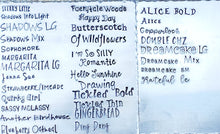 Shadows Into Light
SHADOWS LG
Shadows Mix
SOPHOMORE
MARGARITA
MARGARITA LG
Jenna Sue
Strawberry/limeade
Quirky Girl
SASSY MOLASSY
Another Birdhouse
Blueberry Oatmeal
Fairytale Woods
Happy Day
Butterscotch
Of Wildflowers
I'm So Silly
Romantic
Hello Sunshine
Drawing
Tickled Bold
Tickled Thin
GINGERBREAD
Ding Dong
ALICE BOLD
Alice
Copperlock
DOUBLE CHZ
DREAMCAKE LG
Dreamcake Mix
DREAMCAKE SM
Grateful